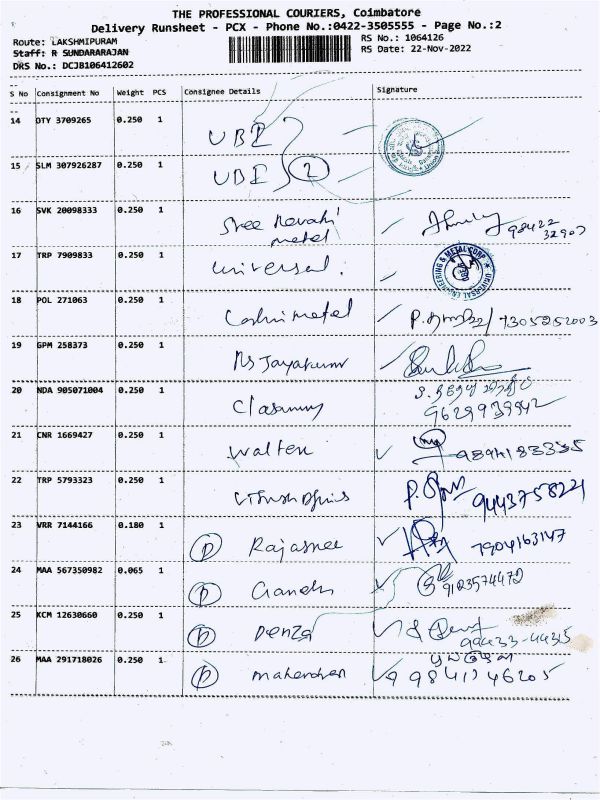 THE PROFESSIONAL COURIERS, Coimbatore
Delivery Runsheet - PCX - Phone No.:0422-3505555 - Page No.:2
Route: LAKSHMIPURAM
Staff: R SUNDARARAJAN
DRS No.: DCJB106412602
RS No.: 1064126
RS Date: 22-Nov-2022
S No Consignment No Weight PCS Consignee Details Signature
14 DTY 3709265 0.250 1 UBI
15 SLM 307926287 0.250 1 UBI 2
16 SVK 20098333 0.250 1 Sree Revathi metal 98422 32907
17 TRP 7909833 0.250 1 Universal. UNIVERSAL ENGINEERING & METAL CORP
18 POL 271063 0.250 1 metal 7305252003
19 GPM 258373 0.250 1 Jayakumar
20 NDA 905071004 0.250 1 9629939942
21 CNR 1669427 0.250 1 Walter 9894183335
22 TRP 5793323 0.250 1 9443758221
23 VRR 7144166 0.180 1 P Rajasree 7904163147
24 MAA 567350982 0.065 1 P 9123574472
25 KCM 12630660 0.250 1 P Denza 99433-44315
26 MAA 291718026 0.250 1 P Mahendran 9984146205